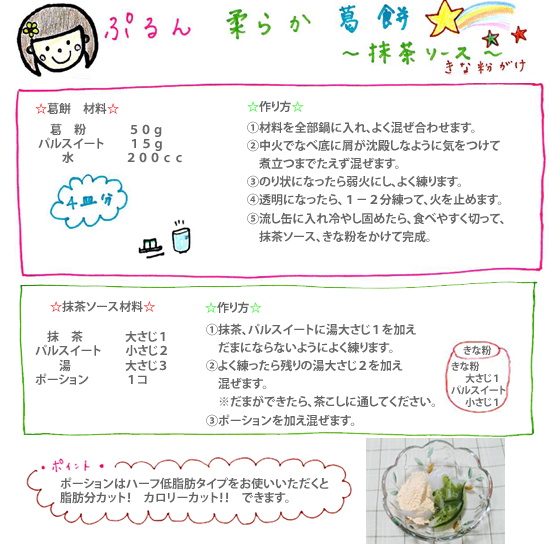 ぷるん 柔らか 葛餅
～抹茶ソース～
きな粉がけ
☆葛餅 材料☆
葛 粉 50g
パルスイート 15g
水 200cc
4皿分
☆作り方☆
①材料を全部鍋に入れ、よく混ぜ合わせます。
②中火でなべ底に屑が沈殿しなように気をつけて
煮立つまでたえず混ぜます。
③のり状になったら弱火にし、よく練ります。
④透明になったら、1－2分練って、火を止めます。
⑤流し缶に入れ冷やし固めたら、食べやすく切って、
抹茶ソース、きな粉をかけて完成。
☆抹茶ソース材料☆
抹 茶 大さじ1
パルスイート 小さじ2
湯 大さじ3
ポーション 1コ
☆作り方☆
①抹茶、パルスイートに湯大さじ1を加え
だまにならないようによく練ります。
②よく練ったら残りの湯大さじ2を加え
混ぜます。
※だまができたら、茶こしに通してください。
③ポーションを加え混ぜます。
きな粉
きな粉
大さじ1
パルスイート
小さじ1
・ポイント・
ポーションはハーフ低脂肪タイプをお使いいただくと
脂肪分カット! カロリーカット!! できます。